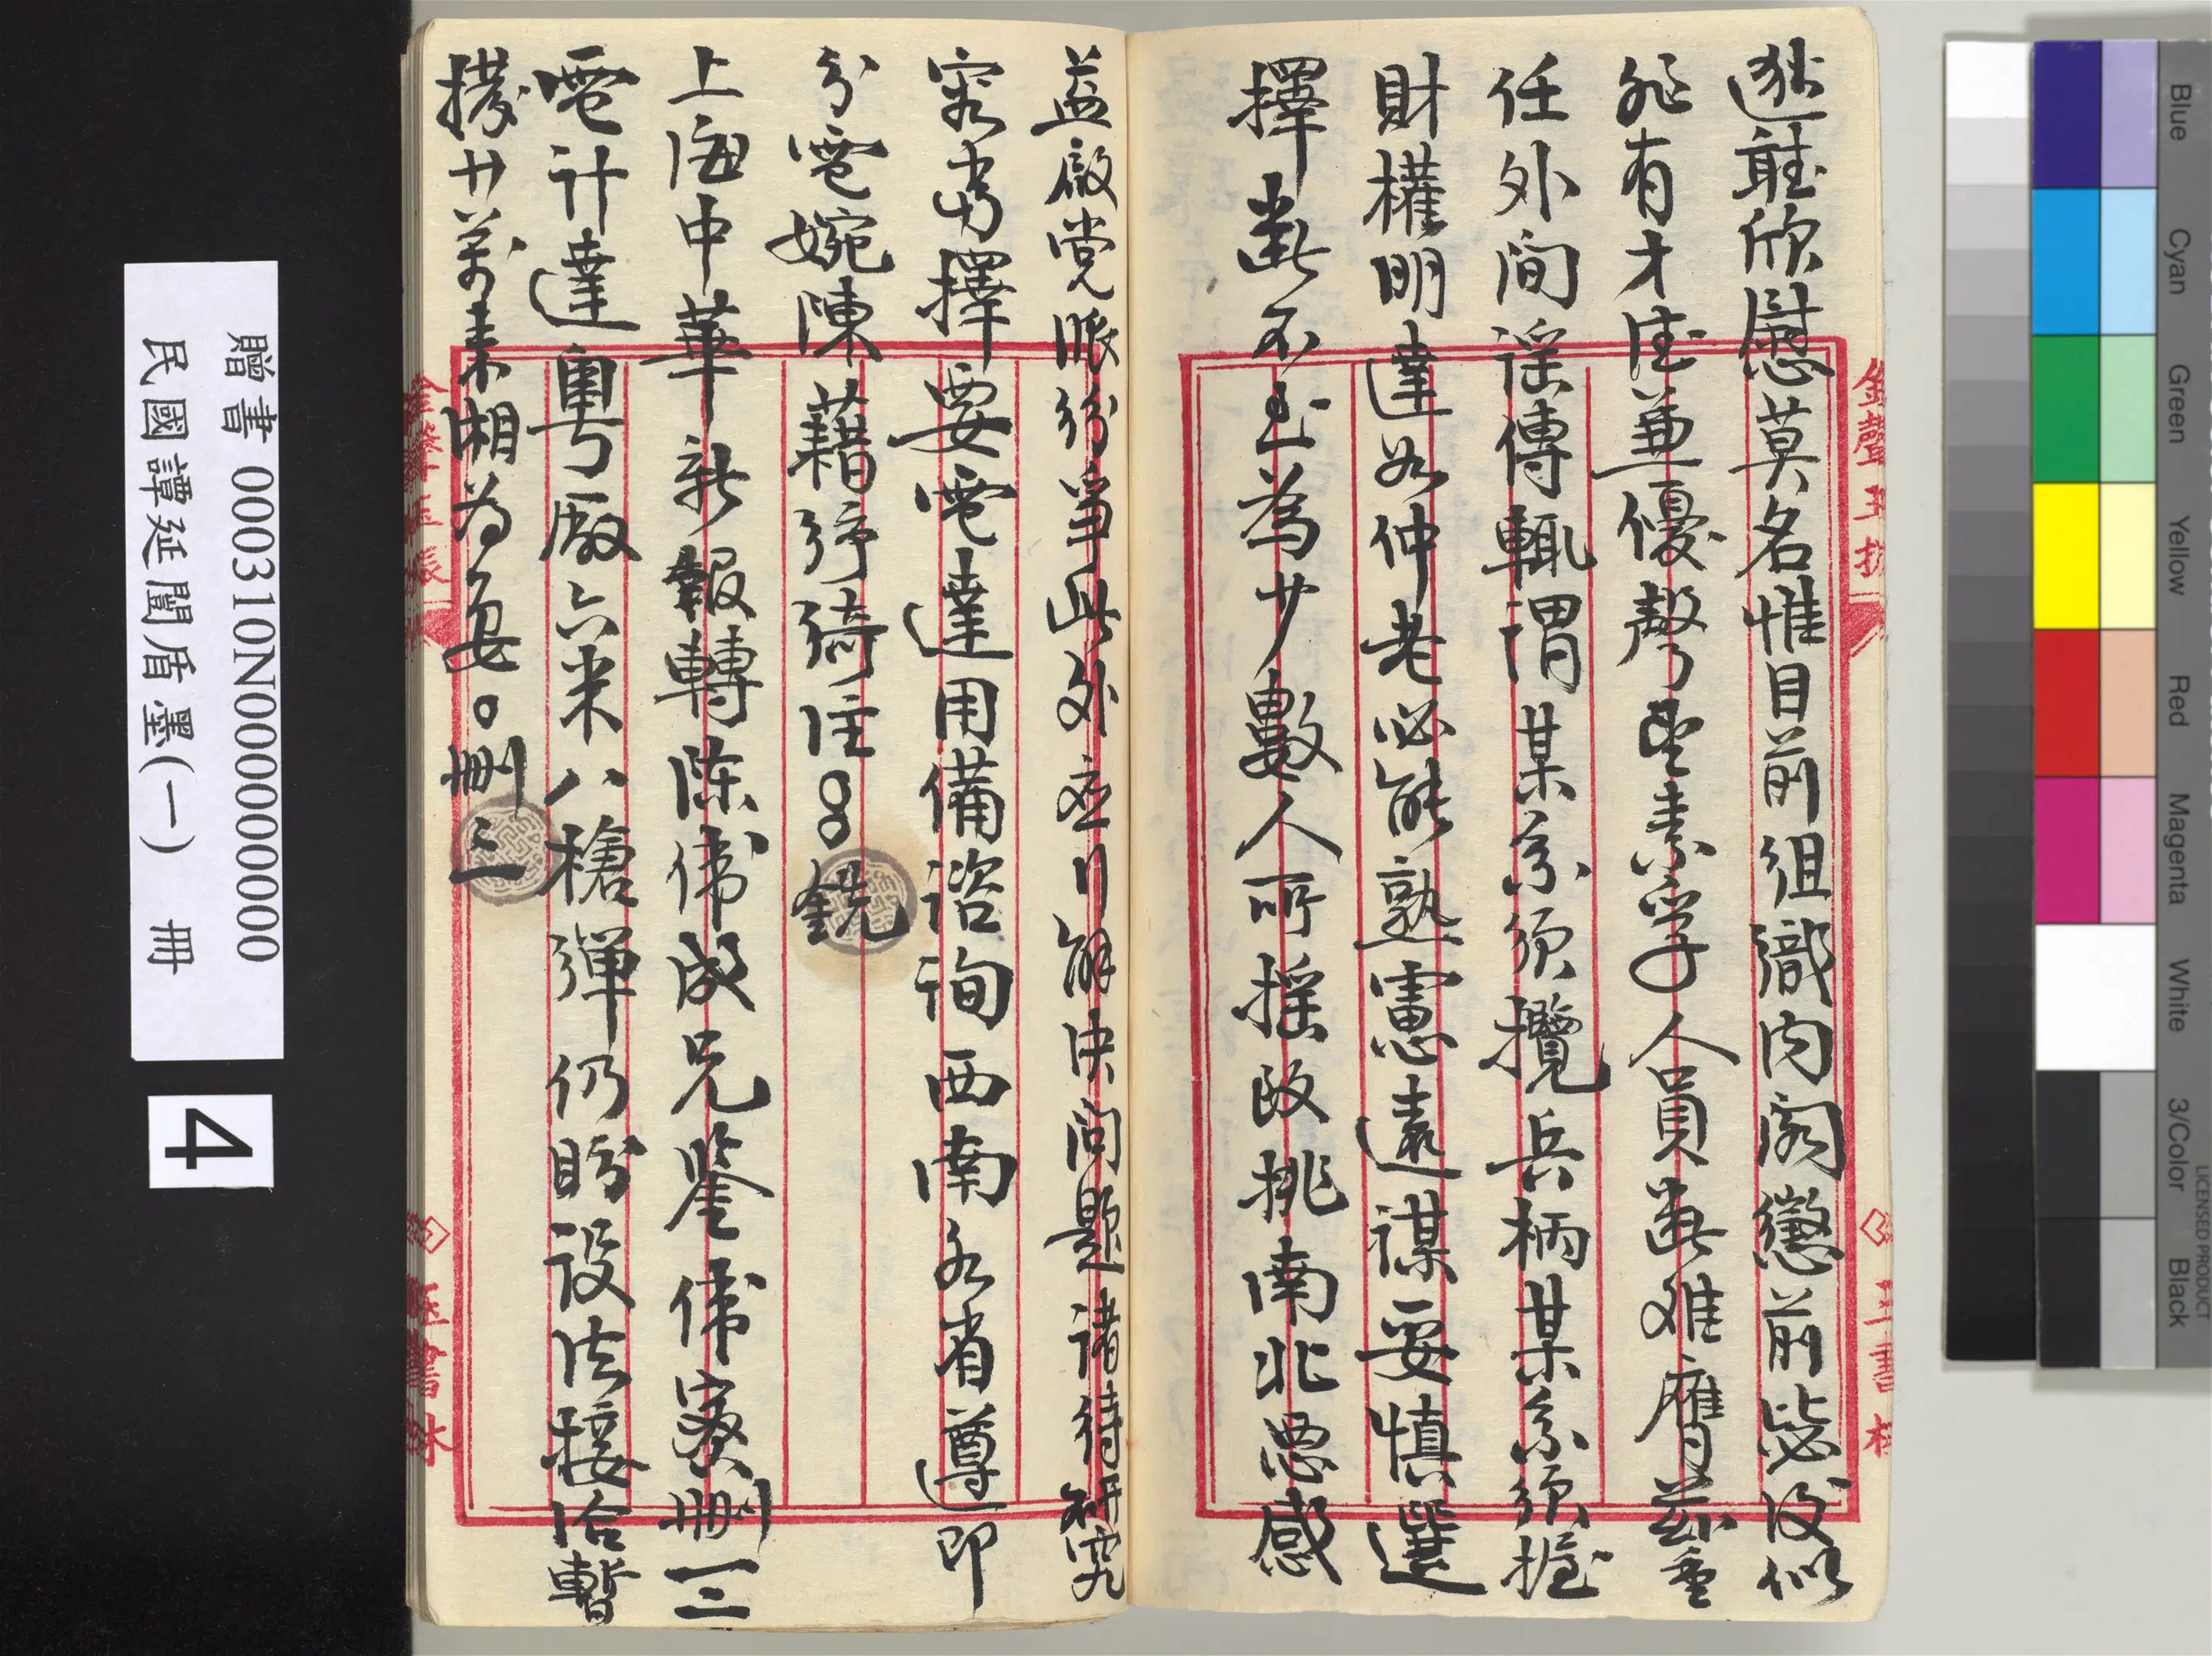 逖聽欣慰莫名惟目前組織內閣懲前毖後似
非有才德兼優聲望素孚人員斷難膺茲重
任外間謠傳輒謂某系須攬兵柄某系須握
財權明達如仲老必能熟慮遠謀妥慎選
擇斷不至為少數人所搖改挑南北惡感
益啟党派紛爭此外應行解決問題諸待研究
容當擇要電達用備諮詢西南各省遵即
分電婉陳藉紓綺注〇〇銑
上海中華新報轉陳偉成兄鑒偉密刪三
電計達粵廠六米八槍彈仍盼設法接洽暫
撥廿萬來湘為妥〇刪三
贈書 000310N0000000000
民國譚延闓盾墨(一) 冊
4
Blue
Cyan
Green
Yellow
Red
Magenta
White
3/Color
Black
LICENSED PRODUCT